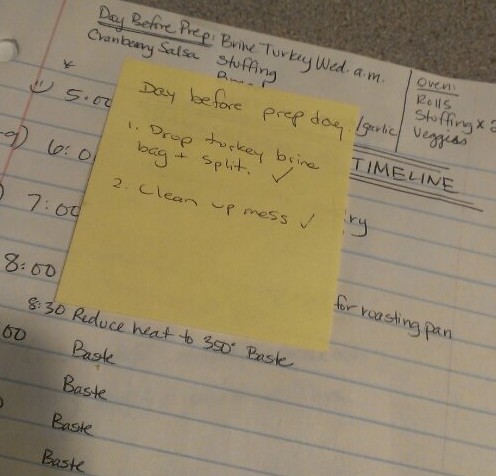 Day Before Prep: Brine Turkey Wed. a.m.
Cranberry Salsa Stuffing
Oven:
Rolls
Stuffing x 2
Veggies
5:00
/garlic
6:0
TIMELINE
7:00
8:00
for roasting pan
8:30 Reduce heat to 350° Baste
00 Baste
Baste
Baste
Baste
Day before prep day.
1. Drop turkey brine
bag + split. ✓
2. Clean up mess ✓